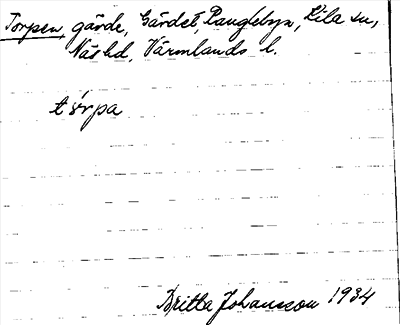 Torpen, gärde, Gärdet, Panglebyn, Kila sn,
Näs hd, Värmlands l.
tɷrpa
Britta Johansson 1934